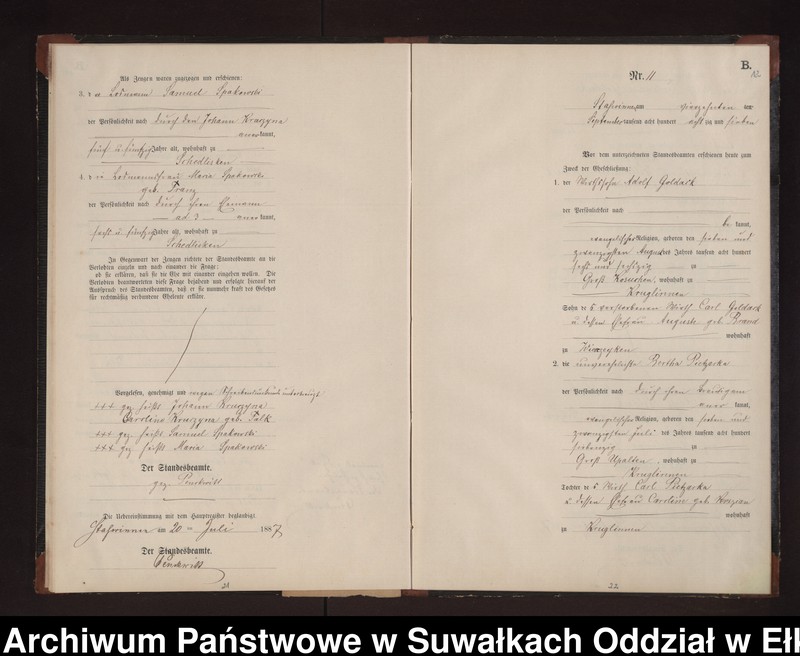 Als Zeugen waren zugezogen und erschienen:
3. der Losmann Samuel Spakowski
der Persönlichkeit nach durch den Johann Kruczyna
anerkannt,
fünf u. fünfzig Jahre alt, wohnhaft zu
Schedlisken
4. die Losmannsfrau Maria Spakowski
geb. Franz
der Persönlichkeit nach durch ihren Ehemann
ad. 3 anerkannt,
sechs u. fünfzig Jahre alt, wohnhaft zu
Schedlisken
In Gegenwart der Zeugen richtete der Standesbeamte an die
Verlobten einzeln und nach einander die Frage:
ob sie erklären, daß sie die Ehe mit einander eingehen wollen. Die
Verlobten beantworteten diese Frage bejahend und erfolgte hierauf der
Ausspruch des Standesbeamten, daß er sie nunmehr kraft des Gesetzes
für rechtmäßig verbundene Eheleute erkläre.
Vorgelesen, genehmigt und wegen Schreibensunkunde unterkreuzt
+++ gez. heißt Johann Kruczyna
Caroline Kruczyna geb. Falk
+++ gez. heißt Samuel Spakowski
+++ gez. heißt Maria Spakowski
Der Standesbeamte.
gez.
Die Uebereinstimmung mit dem Hauptregister beglaubigt
am 20 ten Juli 1887
Der Standesbeamte.
21
B.
12.
Nr. 11
am vierzehnten ten
September tausend acht hundert achtzig und sieben
Vor dem unterzeichneten Standesbeamten erschienen heute zum
Zweck der Eheschließung:
1. der Wirthssohn Adolf Goldack
der Persönlichkeit nach
be kannt,
evangelischer Religion, geboren den sieben und
zwanzigsten August des Jahres tausend acht hundert
sechs und sechszig zu
Groß Kosuchen, wohnhaft zu
Kruglinnen
Sohn des verstorbenen Wirth Carl Goldack
u. dessen Ehefrau Auguste geb. Brand
wohnhaft
zu
2. die unverehelichte Bertha Pietzarka
der Persönlichkeit nach durch ihren Bräutigam
aner kannt,
evangelischer Religion, geboren den sieben und
zwanzigsten Juli des Jahres tausend acht hundert
siebenzig zu
Groß Upalten, wohnhaft zu
Kruglinnen
Tochter des Wirth Carl Pietzarka
u. dessen Ehefrau Caroline geb.
wohnhaft
zu Kruglinnen
22
Archiwum Państwowe w Suwałkach Oddział w Ełk